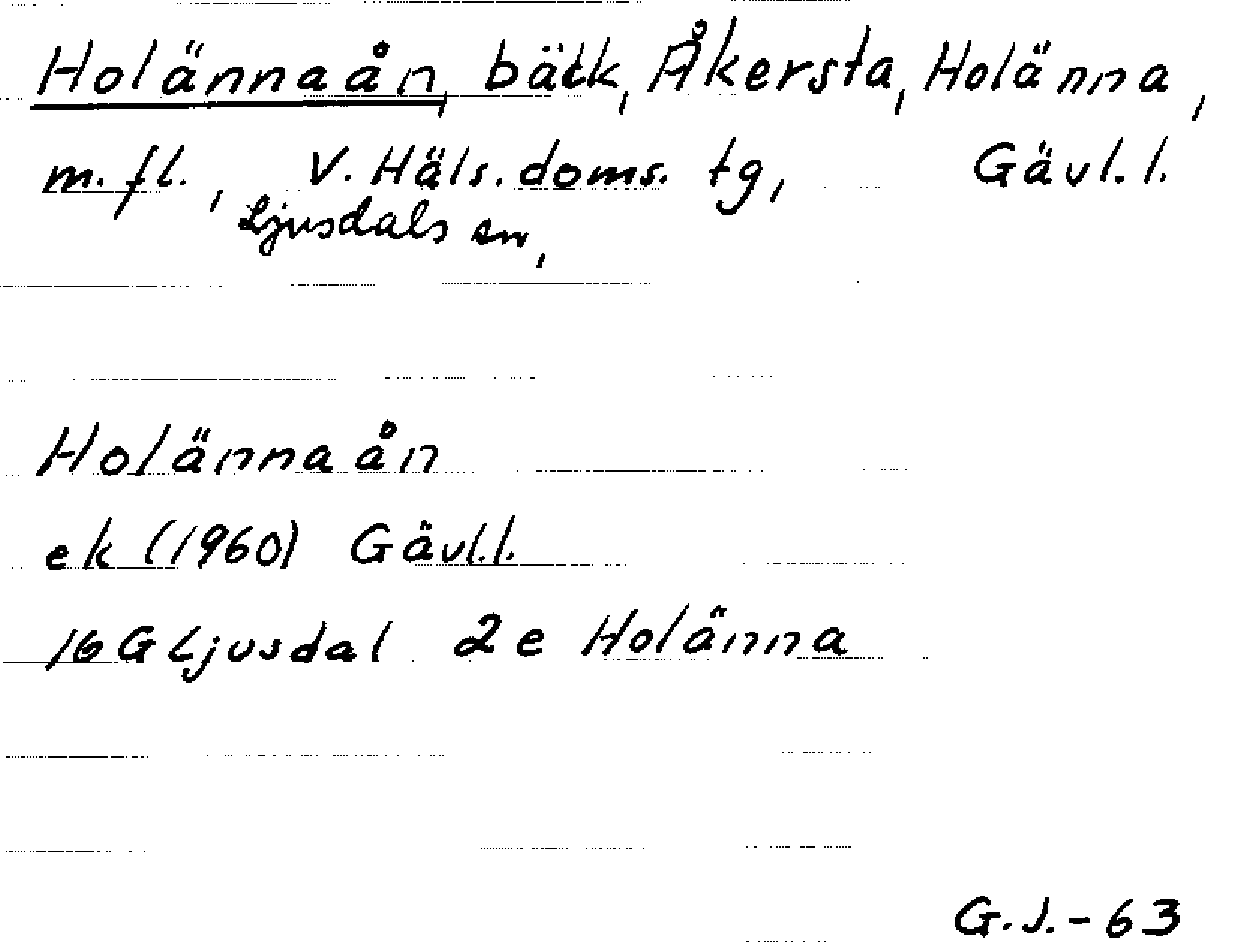 Holännaån, bäck, Åkersta, Holänna,
m.fl., V. Häls. doms. tg, Gävl. l.
Ljusdals sn,
Holännaån
ek (1960) Gävl.l.
16 G Ljusdal 2 e Holänna
G.J.-63